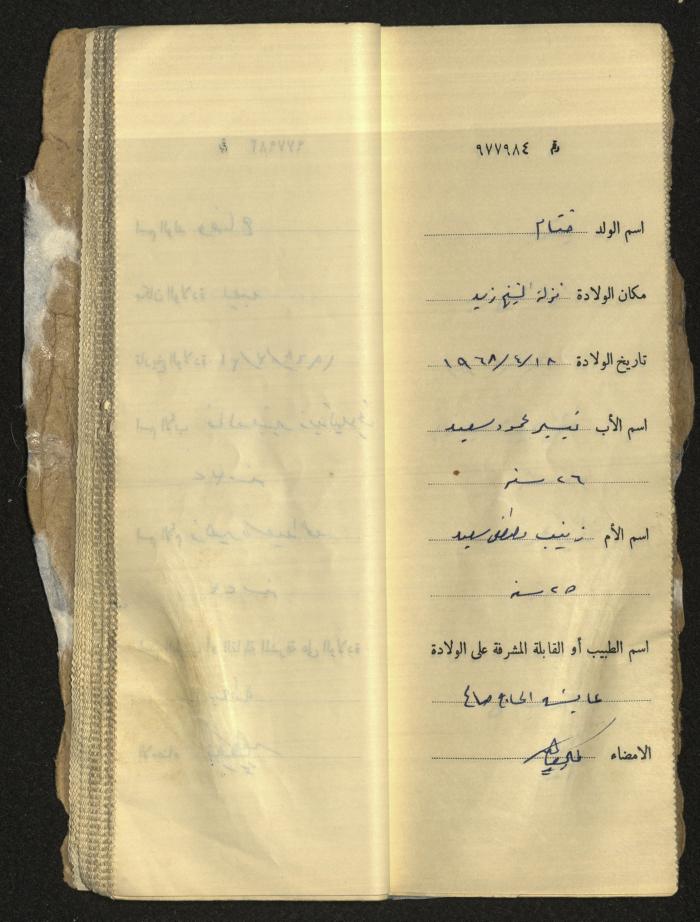 رقم ٩٧٧٩٨٤
اسم الولد ختام
مكان الولادة نزلة الشيخ زيد
تاريخ الولادة ١٨/٤/١٩٦٨
اسم الأب تيسير محمود سعيد
٢٦ سنه
اسم الأم زينب مصطفى سعيد
٢٥ سنه
اسم الطبيب أو القابلة المشرفة على الولادة
عايشه الحاج صالح
الامضاء